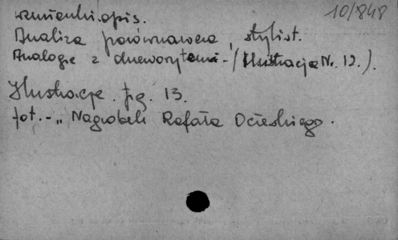 10/848
wzmianki: opis.
Analiza porównawcza, stylist.
Analogje z drzeworytami - (Ilustracja Nr. 12.).
Ilustracje. fig. 13.
fot. - „Nagrobek Rafała Ocieskiego.